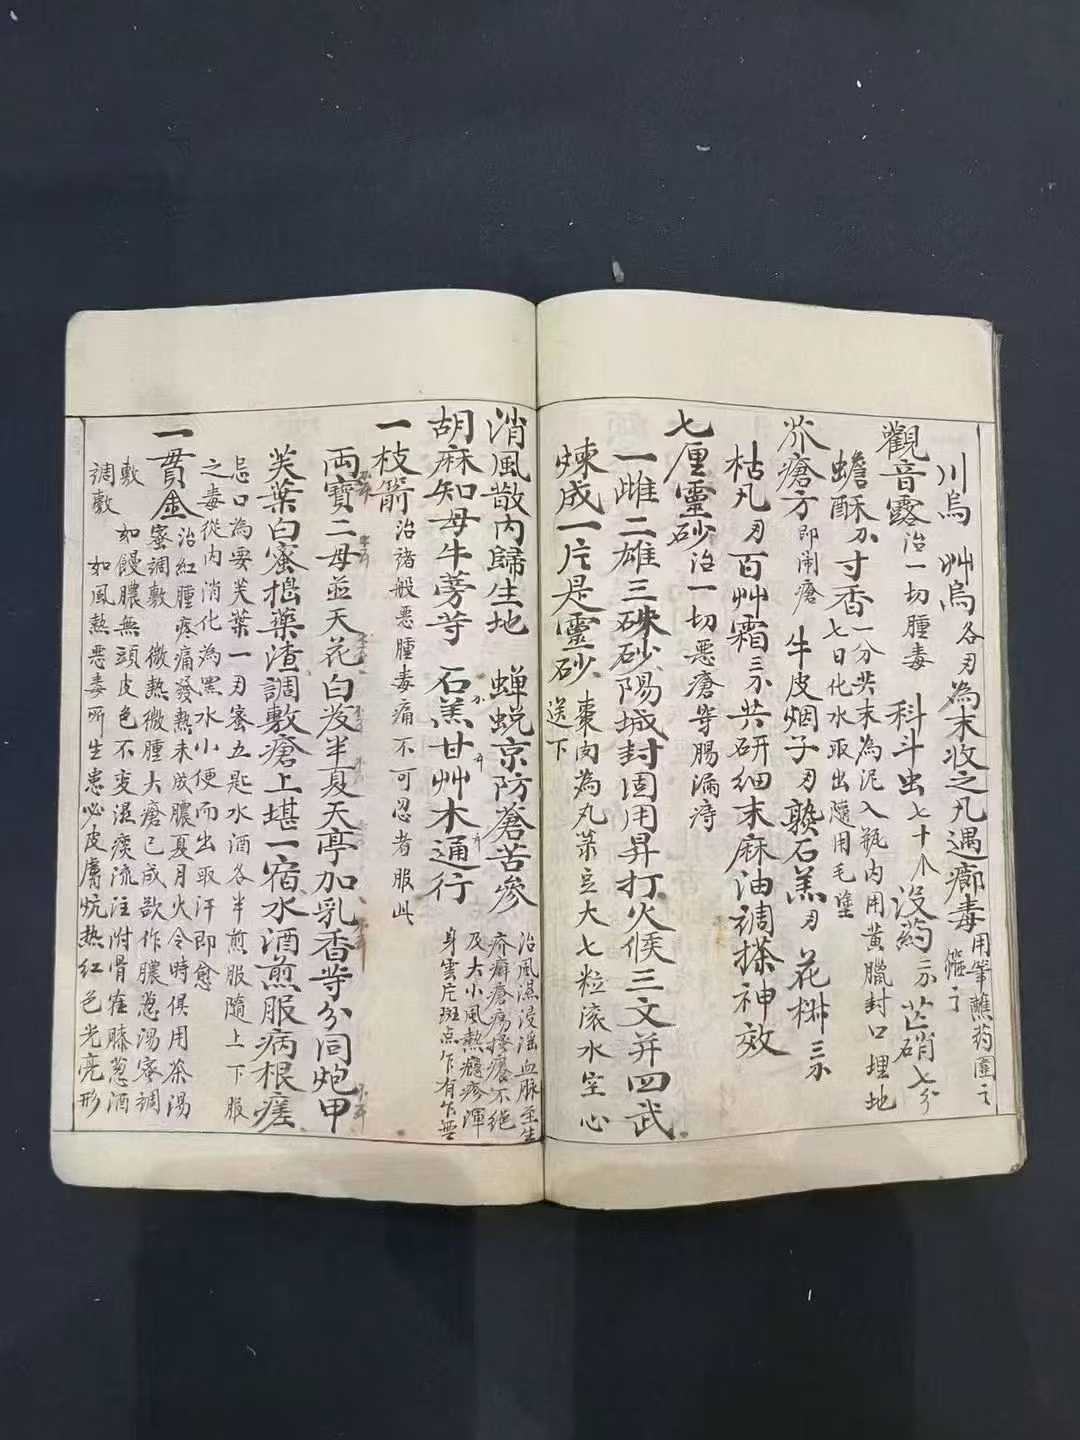 川烏 艸烏各刃為末收之凡遇癤毒用筆蘸葯圍之
觀音露治一切腫毒 科斗虫七十个 没葯二分 芒硝七分
蟾酥分寸香一分共末為泥入瓶内用黄臘封口埋地
七日化水取出隨用毛塗
疥瘡方即鬧瘡 牛皮烟子刃 熟石羔刃 花椒三分
枯凡刃百艸霜三分共研細末麻油調搽神效
七厘靈砂治一切恶瘡等腸漏痔
一雌二雄三硃砂陽城封固用昇打火候三文并四武
煉成一片是靈砂棗肉為丸菉豆大七粒滚水空心
送下
消風散内歸生地 蝉蜕京防蒼苦參治風濕浸淫血脉至生
疥癬瘡瘍搔癢不绝
及大小風熱癮疹渾
身雲片斑点乍有乍無
胡麻知母牛蒡等 石羔甘艸木通行
一枝箭治諸般恶腫毒痛不可忍者服此
両寶二母並天花白芨半夏天亭加乳香等分同炮甲
芙葉白蜜搗藥渣調敷瘡上堪一宿水酒煎服病根瘥
忌口為要芙葉一刃蜜五匙水酒各半煎服隨上下服
之毒從内消化為黑水小便而出取汗即愈
一貫金治紅腫疼痛發熱未成膿夏月火令時俱用茶湯
蜜調敷 微熱微腫大瘡已成欲作膿葱湯蜜調
敷 如饅膿無頭皮色不变濕痰流注附骨在膝葱酒
調敷 如風熱恶毒所生患必皮膚炕热紅色光亮形